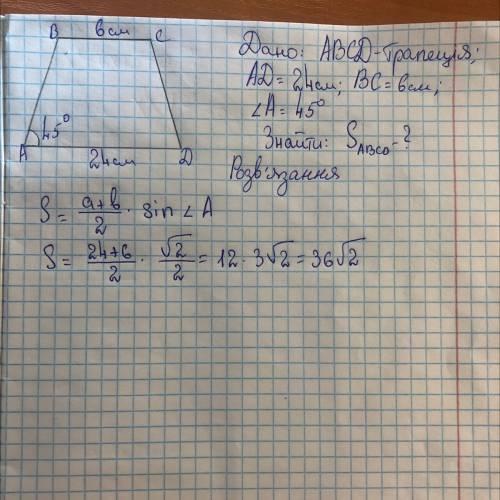 B 6 см C
45°
A 24 см D
Дано: ABCD - трапеція;
AD = 24 см; BC = 6 см;
∠A = 45°
Знайти: S_ABCD - ?
Розв'язання
S = (a+b)/2 · sin ∠A
S = (24+6)/2 · √2/2 = 12 · 3√2 = 36√2